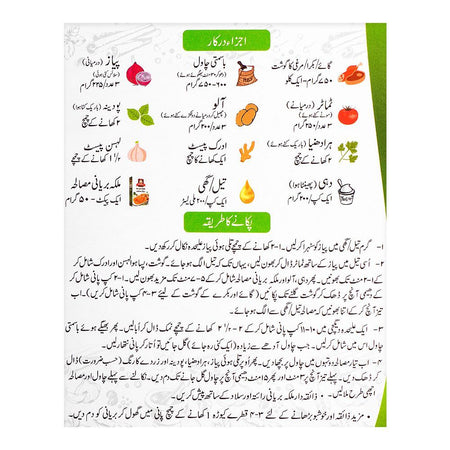 اجزاء درکار
گائے/بکرا/مرغی کا گوشت
۷۵۰ گرام - ایک کلو
باسمتی چاول
۶۰۰-۷۵۰ گرام
پیاز (درمیانی)
۳ عدد/۲۲۵ گرام
ٹماٹر (درمیانے)
۳ عدد/۲۵۰ گرام
آلو
۳ عدد/۳۰۰ گرام
پودینہ (باریک کٹا ہوا)
۲ کھانے کے چمچ
ہرا دھنیا (باریک کٹا ہوا)
۲ کھانے کے چمچ
ادرک پیسٹ
۱ کھانے کا چمچ
لہسن پیسٹ
۱ ۱/۲ کھانے کے چمچ
دہی (پھینٹا ہوا)
ایک کپ/۲۰۰ گرام
تیل/گھی
ایک کپ/۲۰۰ ملی لیٹر
ملکہ بریانی مصالحہ
ایک پیکٹ - ۵۰ گرام
پکانے کا طریقہ
۱- گرم تیل/گھی میں پیاز کو سنہرا کرلیں۔ ۱-۲ کھانے کے چمچے تلی ہوئی پیاز علیحدہ نکال کر رکھ دیں۔
۲- اُسی تیل میں پیاز کے ساتھ ٹماٹر ڈال کر بھون لیں، یہاں تک کہ تیل الگ ہو جائے۔ گوشت، پسا ہوا لہسن اور ادرک شامل کر
کے ۱-۲ منٹ تک بھونیں۔ پھر دہی، آلو اور ملکہ بریانی مصالحہ ملا کر ۵-۷ منٹ تک مزید بھون لیں۔ ۱-۲ کپ پانی شامل کر
کے دھیمی آنچ پر ڈھک کر گوشت گلنے تک پکائیں (گائے اور بکرے کے گوشت کے لئے ۳-۴ کپ پانی شامل کریں)۔ اب
تیز آنچ پر اتنا بھونیں کہ مصالحہ تیل/گھی سے الگ ہو جائے۔
۳- ایک علیحدہ دیگچی میں ۱۰-۱۱ کپ پانی شامل کر کے ۲-۲ ۱/۲ کھانے کے چمچے نمک ڈال کر اُبالیں۔ پھر بھیگے ہوئے باسمتی
چاول اس میں شامل کرلیں۔ جب چاول آدھے سے زیادہ (ایک کنی رہ جائے) گل جائیں تو اُتار کر پانی نتھار لیں۔
۴- اب تیار مصالحہ دو تہوں میں چاول پر بچھا دیں۔ پھر اُوپر تلی ہوئی پیاز، ہرا دھنیا، پودینہ اور زردے کا رنگ (حسب ضرورت) ڈال
کے ڈھک دیں۔ پہلے تیز آنچ پر ۳ منٹ اور پھر ۱۵ منٹ دھیمی آنچ پر چاول گل جانے تک دم دیں۔ نکالنے سے پہلے چاول اور مصالحہ
اچھی طرح ملا لیں۔ • ذائقہ دار ملکہ بریانی رائتہ اور سلاد کے ساتھ پیش کریں۔
• مزید ذائقہ اور خوشبو بڑھانے کے لئے ۳-۴ قطرے کیوڑہ ۱ کھانے کے چمچ پانی میں گھول کر بریانی کو دم دیں۔